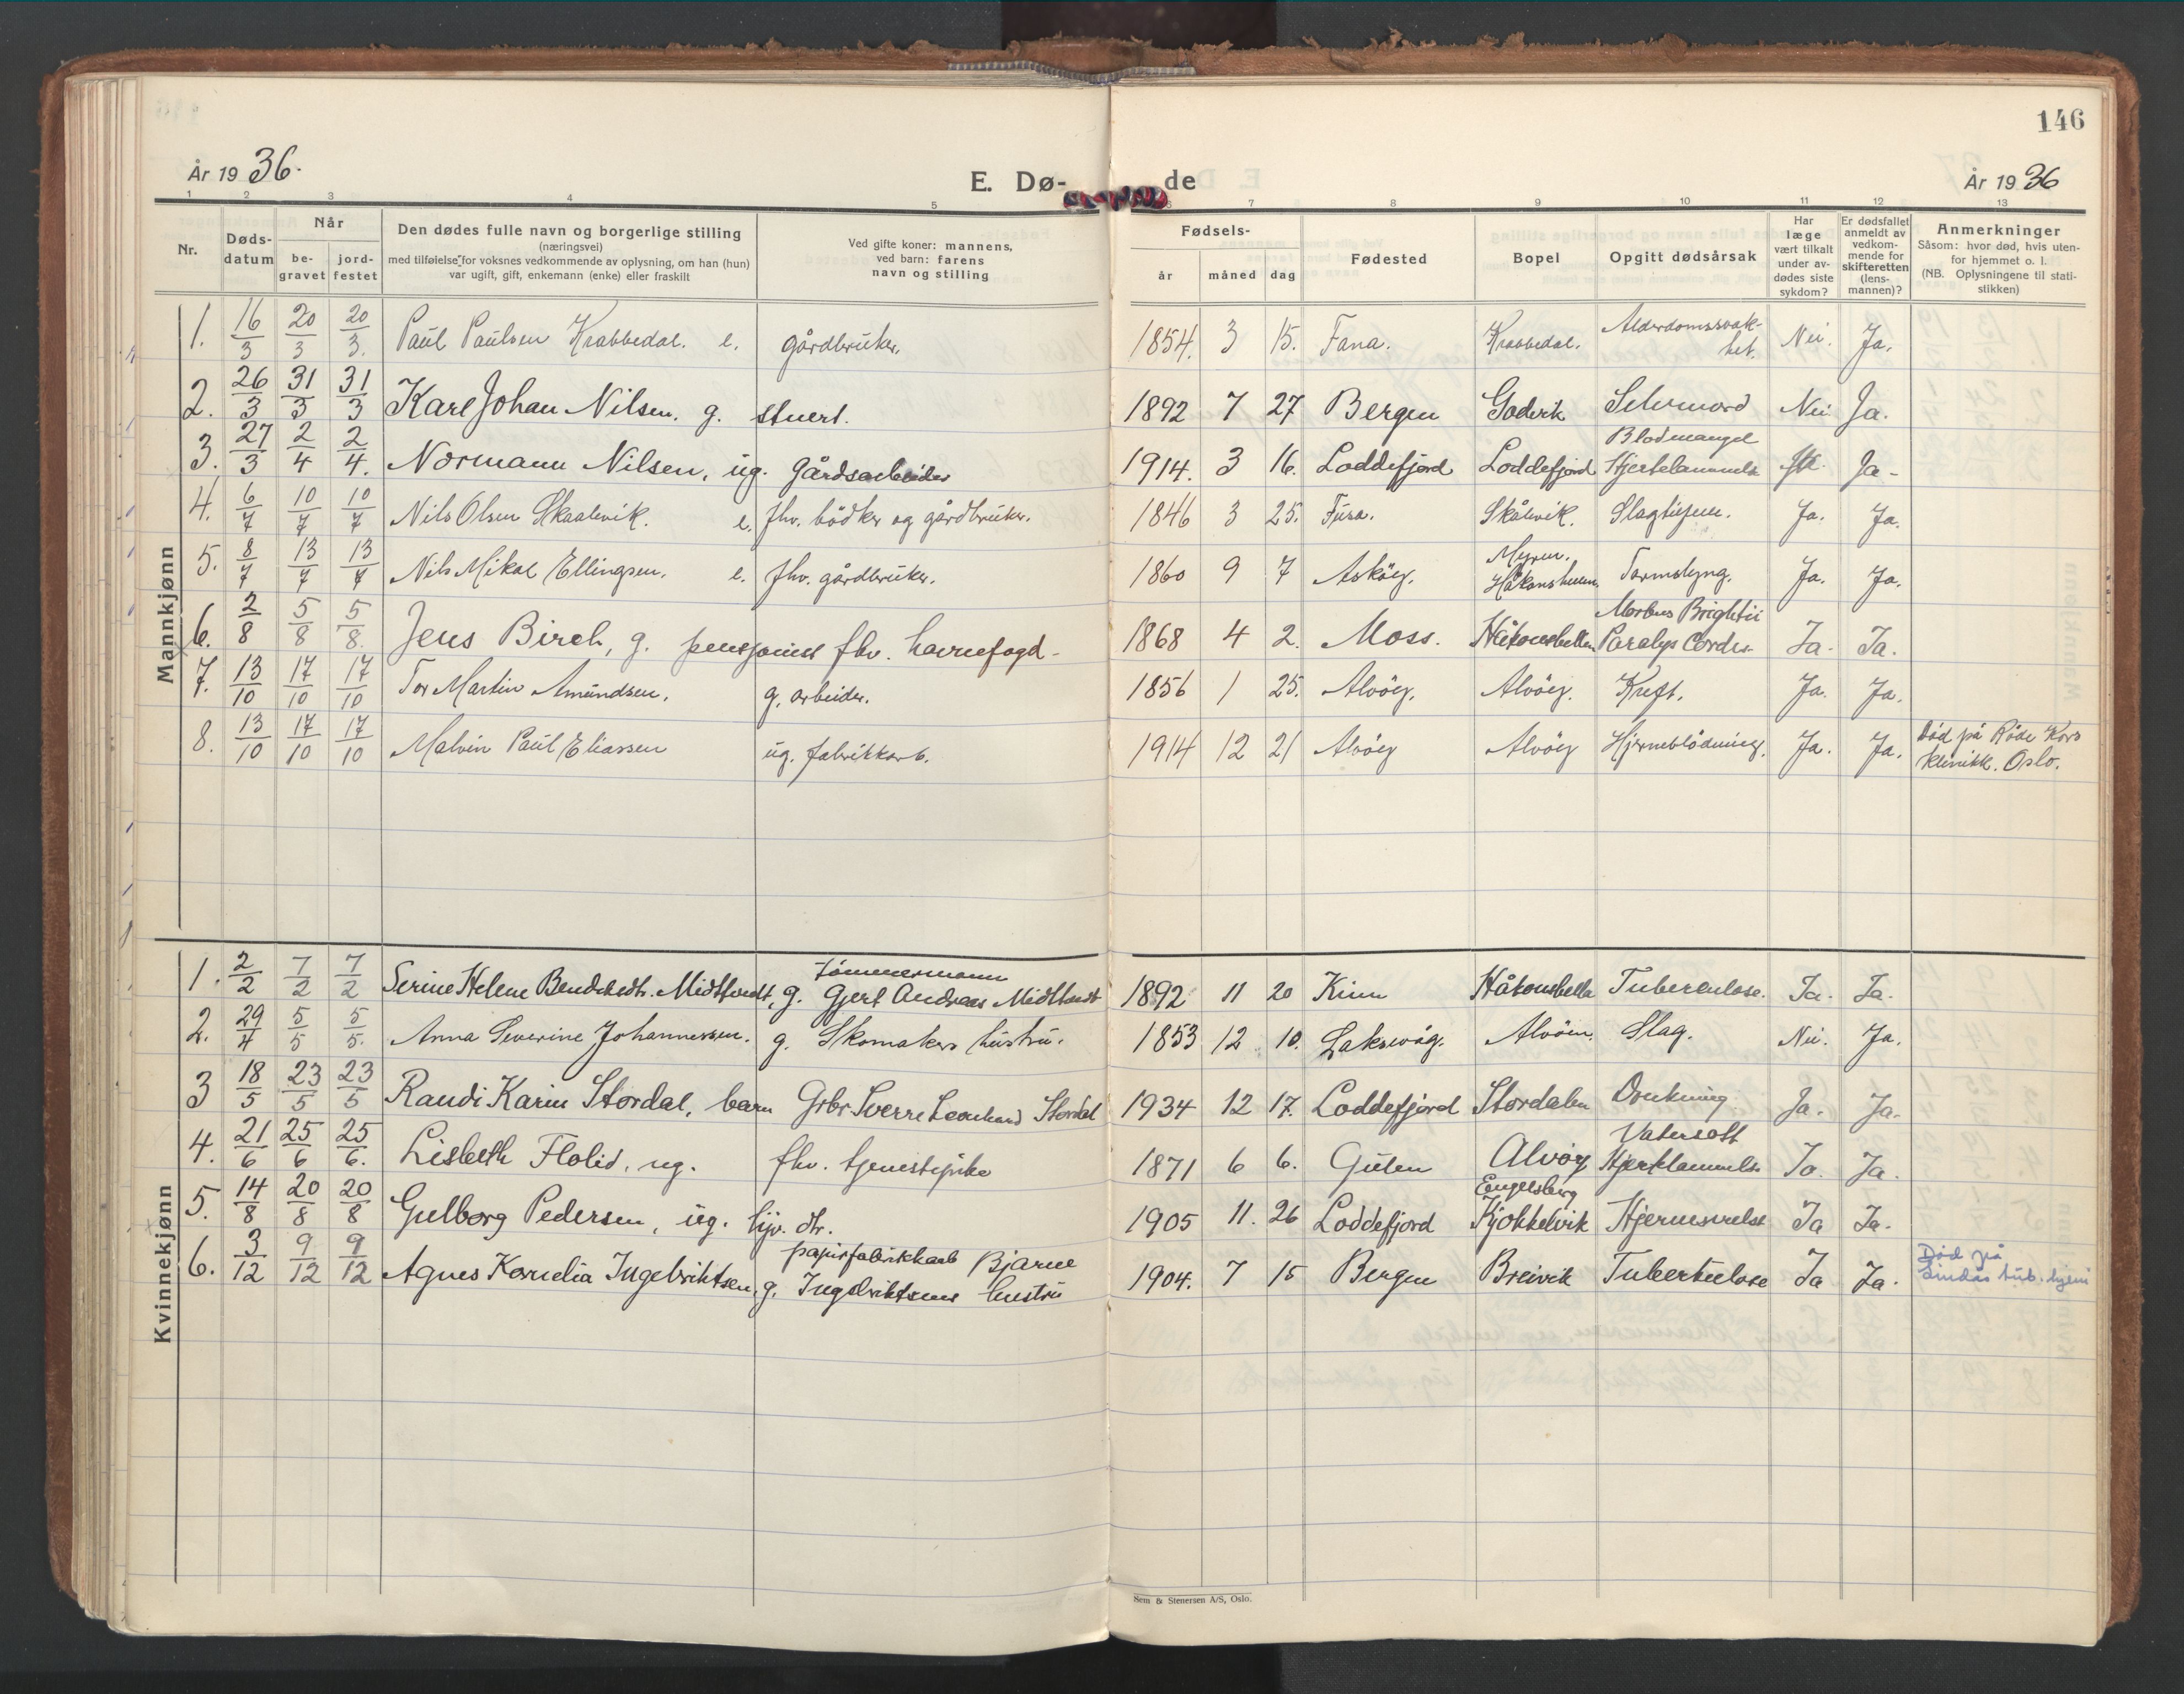 146
År 1936.
E. Dø-
de
År 1936
1 2 3 4 5 6 7 8 9 10 11 12 13
Nr.
Døds-
datum
Når
be-
gravet
jord-
festet
Den dødes fulle navn og borgerlige stilling
(næringsvei)
med tilføielse for voksnes vedkommende av oplysning, om han (hun)
var ugift, gift, enkemann (enke) eller fraskilt
Ved gifte koner: mannens,
ved barn: farens
navn og stilling
Fødsels-
år måned dag
Fødested
Bopel
Opgitt dødsårsak
Har
læge
vært tilkalt
under av-
dødes siste
sykdom?
Er dødsfallet
anmeldt av
vedkom-
mende for
skifteretten
(lens-
mannen)?
Anmerkninger
Såsom: hvor død, hvis uten-
for hjemmet o. l.
(NB. Oplysningene til stati-
stikken)
Mannkjønn
1. 16/3 20/3 20/3. Paul Paulsen Krabbedal. e. gårdbruker. 1854. 3 15. Fana. Krabbedal. Alderdomssvak-
het. Nei. Ja.
2. 26/3 31/3 31/3 Karl Johan Nilsen. g. stuert. 1892 7 27 Bergen Godvik Selvmord Nei Ja.
Blodmangel
3. 27/3 2/4 2/4. Normann Nilsen, ug. Gårdsarbeider 1914. 3 16. Loddefjord Loddefjord Hjertelammelse Ja-
4. 6/7 10/7 10/7 Nils Olsen Skaalevik. e. fhv. bödker og gårdbruker. 1846 3 25. Fusa. Skålevik. Ja. Ja.
Myren.
5. 8/7 13/7 13/7 Nils Mikal Ellingsen. e. fhv. gårdbruker. 1860 9 7 Asköy. Tarmslyng. Ja. Ja.
Morbus Brightii
6. 2/8 5/8 5/8. Jens Birch, g. pensjonert fhv. havnefogd- 1868 4 2. Moss. Håkonshella Paralys Cordis Ja. Ja.
7. 13/10 17/10 17/10 Tor Martin Amundsen. g. arbeider. 1856 1 25. Alvöy. Alvöy. Kreft. Ja. Ja.
8. 13/10 17/10 17/10 Malvin Paul Eliassen ug. fabrikkarb. 1914 12 21 Alvöy Alvöy Hjerneblödning. Ja. Ja. Død på Røde Kors
klinikk. Oslo.
Kvinnekjønn
tømmermann
1. 2/2 7/2 7/2 Serine Helene Bendiksdtr. Midttveit, g. Gjert Andreas Midttveit 1892 11 20 Kinn Håkonshella Tuberculose. Ja. Ja.
2. 29/4 5/5 5/5. Anna Severine Johannessen. g. Skomakers hustru. 1853 12 10. Laksevåg. Alvöen. Slag. Nei. Ja.
3 18/5 23/5 23/5 Randi Karin Stordal, barn Grbr Sverre Leonhard Stordal 1934 12 17. Loddefjord Stordalen Drukning Ja. Ja.
Vatersott
4. 21/6 25/6 25/6. Lisbeth Flolid, ug. fhv. tjenestepike 1871 6 6. Gulen Alvøy Hjertelammelse Ja. Ja.
Engelsberg
5. 14/8 20/8 20/8 Gulborg Pedersen, ug. hjv. dtr. 1905 11. 26 Loddefjord Kjøkkelvik Ja Ja.
papirfabrikkarb Bjarne
6. 3/12 9/12 9/12 Agnes Kornelia Ingebriktsen, g. Ingebriktsens hustru 1904. 7 15 Bergen Breivik Tuberkulose Ja Ja. Død på
Lindås tub. hjem
Nem & Stenersen A/S, Oslo.